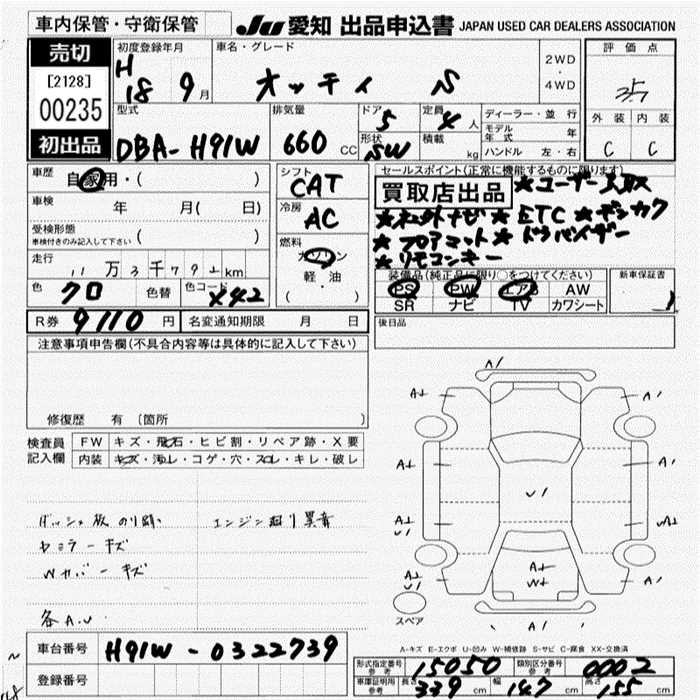 車内保管・守衛保管
JU 愛知 出品申込書 JAPAN USED CAR DEALERS ASSOCIATION
売切
[2128]
00235
初出品
初度登録年月
H
18 9月
車名・グレード
オッティ S
2WD
・
4WD
評価点
外装 内装
C C
型式
DBA-H91W
排気量
660 CC
ドア
5
形状
SW
定員
4人
積載
kg
ディーラー・並行
モデル年式 年
ハンドル 左・右
車歴
自家用・( )
車検
年 月( 日)
受検形態
車検付きのみ記入して下さい ( )
走行
11万3千792km
色
クロ
色替
色コード
X42
シフト
CAT
冷房
AC
燃料
ガソリン
軽油
( )
セールスポイント(正常に機能するものに限ります)
買取店出品
★ユーザー買取
★社外ナビ ★ETC ★デンカク
★フロアマット ★ドアバイザー
★リモコンキー
装備品(純正品に限り○をつけてください)
PS PW エアB AW
SR ナビ TV カワシート
新車保証書
R券 9110 円
名変通知期限 月 日
後日品
注意事項申告欄(不具合内容等は具体的に記入して下さい)
修復歴 有 〔箇所 〕
検査員記入欄
FW キズ・飛石・ヒビ割・リペア跡・X要
内装 キズ・汚レ・コゲ・穴・スレ・キレ・破レ
エンジン廻リ異音
Wカバーキズ
各A.U
車台番号 H91W-0322739
登録番号
A1
A1
U1
スペア
A-キズ E-エクボ U-凹み W-補修跡 S-サビ C-腐食 XX-交換済
形式指定番号 参考 15050
類別区分番号 参考 0002
車庫証明用 参考 長さ 339 cm 幅 147 cm 高さ 155 cm